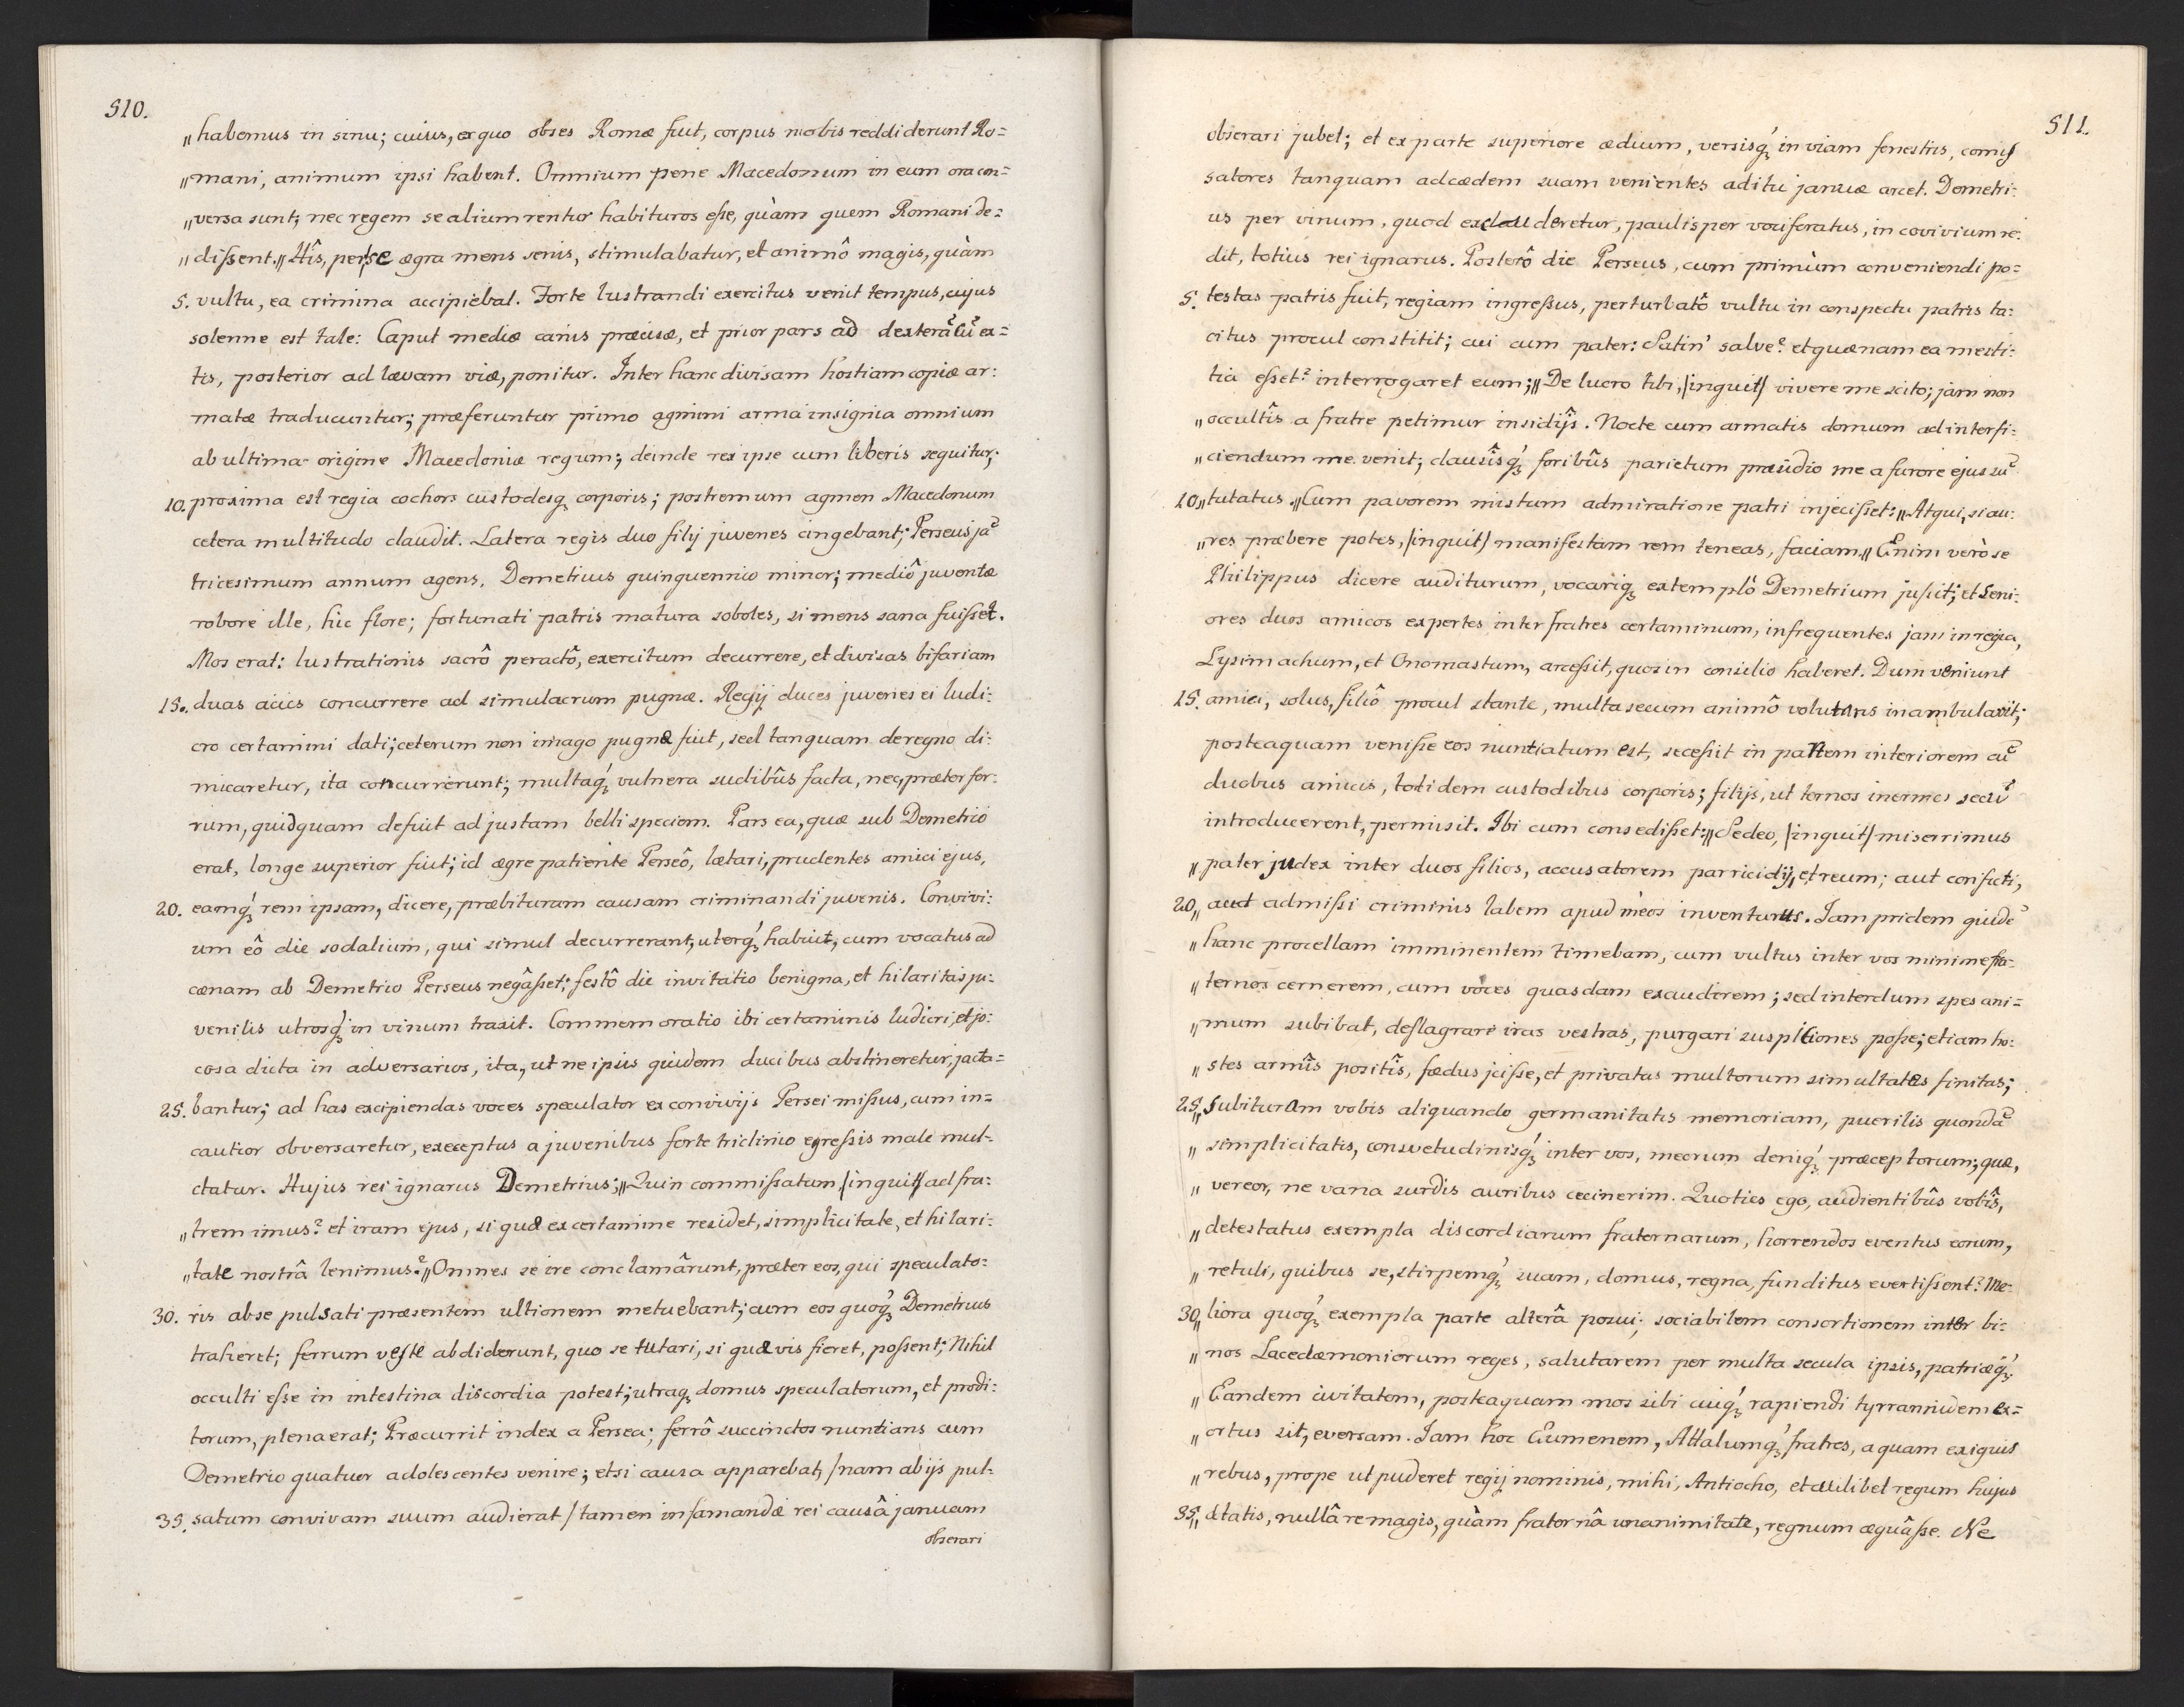 510.
„habemus in sinu; cuius, ex quo obses Romæ fuit, corpus nobis reddiderunt Ro=
„mani, animum ipsi habent. Omnium pene Macedonum in eum ora con=
„versa sunt; nec regem se alium rentur habituros esse, quàm quem Romani de=
„dissent.„ Hîs, per se ægra mens senis, stimulabatur, et animô magis, quàm
5. vultu, ea crimina accipiebat. Forte lustrandi exercitus venit tempus, cujus
solenne est tale: Caput mediæ canis præcisæ, et prior pars ad dexterã cũ ex=
tis, posterior ad lævam viæ, ponitur. Inter hanc divisam hostiam copiæ ar:
matæ traducuntur; præferuntur primo agmini arma insignia omnium
ab ultima origine Macedoniæ regum; deinde rex ipse cum liberis sequitur;
10. proxima est regia cohors custodesq3 corporis; postremum agmen Macedonum
cetera multitudo claudit. Latera regis duo filij juvenes cingebant; Perseus jã
tricesimum annum agens, Demetrius quinquennio minor; mediô juventæ
robore ille, hic flore; fortunati patris matura soboles, si mens sana fuisset.
Mos erat: lustrationis sacrô peractô, exercitum decurrere, et divisas bifariam
15. duas acies concurrere ad simulacrum pugnæ. Regij duces juvenes ei ludi:
cro certamini dati; ceterum non imago pugnæ fuit, sed tanquam de regno di:
micaretur, ita concurrerunt; multaq3 vulnera sudibûs facta, nec, præter fer:
rum, quidquam defuit ad justam belli speciem. Pars ea, quæ sub Demetrio
erat, longe superior fuit; id ægre patiente Perseô, lætari, prudentes amici ejus,
20. eamq3 rem ipsam, dicere, præbituram causam criminandi juvenis. Convivi:
um eô die sodalium, qui simul decurrerant, uterq3 habuit, cum vocatus ad
cænam ab Demetrio Perseus negâsset; festô die invitatio benigna, et hilaritas ju:
venilis utrosq3 in vinum traxit. Commemoratio ibi certaminis ludicri, et jo:
cosa dicta in adversarios, ita, ut ne ipsis quidem ducibus abstineretur, jacta=
25. bantur; ad has excipiendas voces speculator ex convivijs Persei missus, cum in=
cautior obversaretur, exceptus a juvenibus forte triclinio egressis male mul:
ctatur. Hujus rei ignarus Demetrius; „Quin commissatum /inquit/ ad fra:
„trem imus? et iram ejus, si quæ ex certamine residet, simplicitate, et hilari:
„tate nostrâ lenimus?„ Omnes se ire conclamârunt, præter eos, qui speculato:
30. ris ab se pulsati præsentem ultionem metuebant; cum eos quoq3 Demetrius
traheret; ferrum veste abdiderunt, quo se tutari, si quæ vis fieret, possent; Nihil
occulti esse in intestina discordia potest; utraq3 domus speculatorum, et prodi:
torum, plena erat; Præcurrit index a Persea; ferrô succinctos nuntians cum
Demetrio quatuor adolescentes venire; etsi causa apparebat, /nam ab ijs pul:
35. satum convivam suum audierat / tamen infamandæ rei causâ januam
obserari
511.
obserari jubet; et ex parte superiore ædium, versisq3 in viam fenestris, comis
satores tanquam ad cædem suam venientes aditu januæ arcet. Demetri:
us per vinum, quod excluderetur, paulisper vociferatus, in covivium re:
dit, totius rei ignarus. Posterô die Perseus, cum primùm conveniendi po:
5. testas patris fuit, regiam ingressus, perturbatô vultu in conspectu patris ta:
citus procul constitit; cui cum pater: Satin' salve? et quænam ea mesti:
tia esset? interrogaret eum; „De lucro tibi, /inquit/ vivere me scito; jam non
„occultîs a fratre petimur insidijs. Nocte cum armatis domum ad interfi:
„ciendum me venit; clausîsq3 foribûs parietum præsidio me a furore ejus sũ
10. „tutatus.„ Cum pavorem mistum admiratione patri injecisset: „Atqui, si au:
„res præbere potes, /inquit/ manifestam rem teneas, faciam„ Enim verò se
Philippus dicere auditurum, vocariq3 extemplò Demetrium jusit; et Seni:
ores duos amicos expertes inter fratres certaminum, infrequentes jam in regia,
Lysimachum, et Onomastum, arcessit, quos in consilio haberet. Dum veniunt
15. amici, solus, filiô procul stante, multa secum animô volutans inambulavit;
posteaquam venisse eos nuntiatum est, secessit in partem interiorem cũ
duobus amicis, totidem custodibus corporis; filijs, ut ternos inermes secũ
introducerent, permisit. Ibi cum consedisset: „Sedeo, /inquit/ miserrimus
„pater judex inter duos filios, accusatorem parricidij, et reum; aut conficti,
20. „aut admissi criminis labem apud meos inventurus. Jam pridem quidẽ
„hanc procellam imminentem timebam, cum vultus inter vos minime fra:
„ternos cernerem, cum voces quasdam exaudirem; sed interdum spes ani=
„mum subibat, deflagrare iras vestras, purgari suspiciones posse; etiam ho:
„stes armîs positîs, fœdus jcisse, et privatas multorum simultates finitas;
25. „Subituram vobis aliquando germanitatis memoriam, puerilis quondã
„simplicitatis, consvetudinisq3 inter vos, meorum deniq3 præceptorum; quæ,
„vereor, ne vana surdis auribus cecinerim. Quoties ego, audientibûs vobîs,
„detestatus exempla discordiarum fraternarum, horrendos eventus eorum,
„retuli, quibus se, stirpemq3 suam, domus, regna, funditus evertissent? Me:
30. „liora quoq3 exempla parte alterâ posui; sociabilem consortionem inter bi:
„nos Lacedæmoniorum reges, salutarem per multa secula ipsis, patriæq3.
„Eandem civitatem, posteaquam mos sibi cuiq3 rapiendi tyrannidem ex=
„ortus sit, eversam. Jam hoc Eumenem, Attalumq3 fratres, a quam exiguis
„rebus, prope ut puderet regij nominis, mihi, Antiocho, et cuilibet regum hujus
35. „ætatis, nullâ re magis, quàm fraternâ unanimitate, regnum æquâsse. Ne